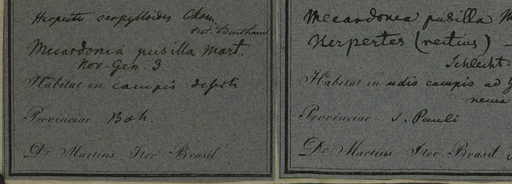 Herpestis serpylloides Cham.
Mecardonia pusilla Mart.
Nov. Gen. 3
Habitat in campis deserti
Provinciae Bah.
Dr Martius Iter Brasil
Mecardonia pusilla M
Herpestes (rectius) –
Schlecht
Habitat in udis campis ad
Provinciae S. Pauli
Dr Martius Iter Brasil